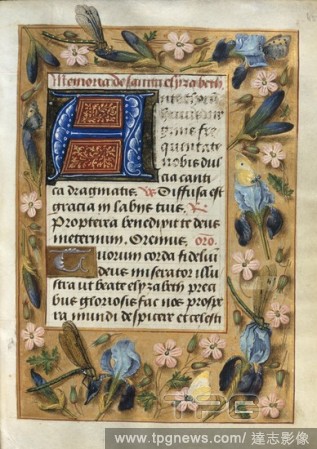 Memoria de sancta elyzabeth
quinitate
nobis dul
cia canti
ca dragmatis. Diffusa est
gracia in labijs tuis.
Propterea benedixit te deus
ineternum. Oremus. oro.
Tuorum corda fidelium
deus miserator illu
stra ut beate elyzabeth prec
bus gloriosis fac nos prospe
ra mundi despicere et celesti
TPG
www.tpgnews.com/ 達志影像